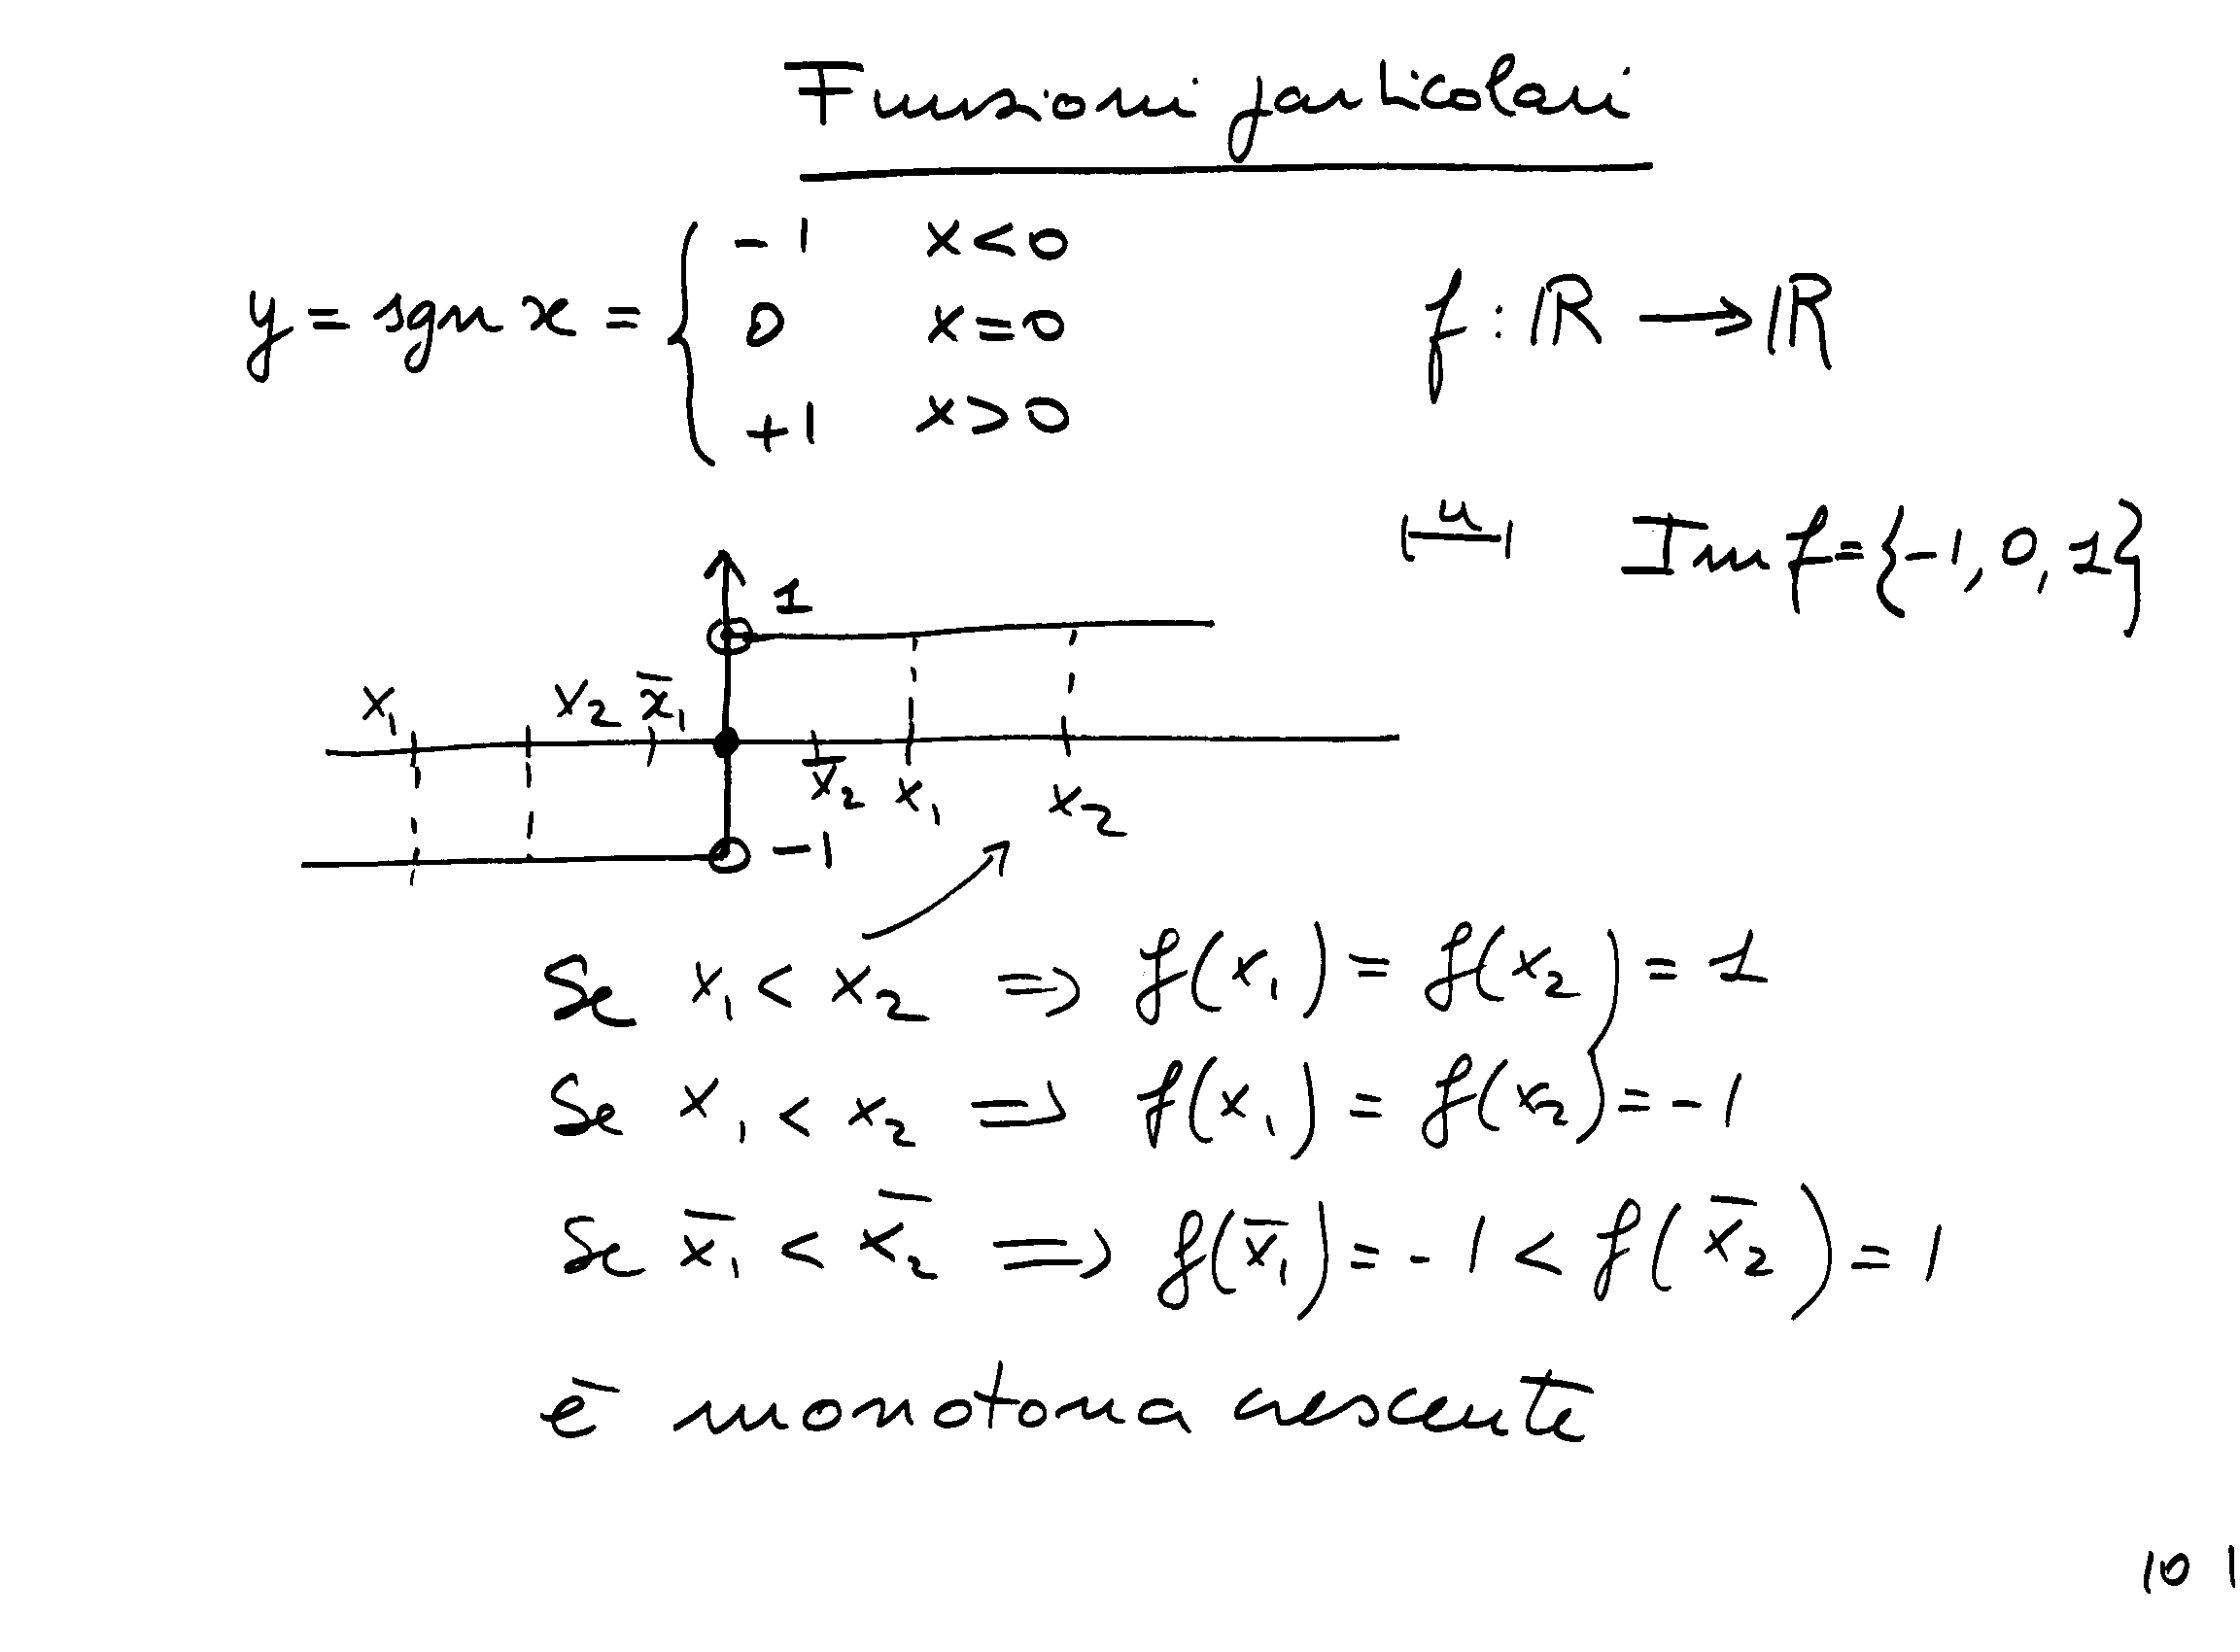 Funzioni particolari
y = sgn x = { -1 x<0
0 x=0
+1 x>0
f : ℝ → ℝ
u Im f = {-1, 0, 1}
1
x₁ x₂ x̄₁
x̄₂ x₁ x₂
-1
Se x₁ < x₂ ⇒ f(x₁) = f(x₂) = 1
Se x₁ < x₂ ⇒ f(x₁) = f(x₂) = -1
Se x̄₁ < x̄₂ ⇒ f(x̄₁) = -1 < f(x̄₂) = 1
è monotona crescente
101